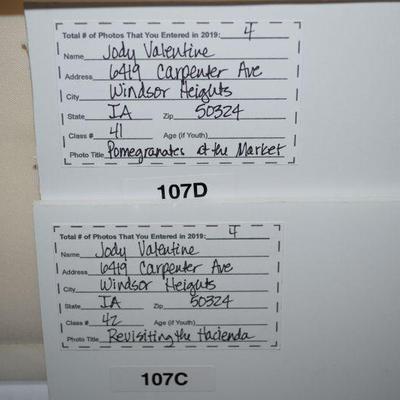 Total # of Photos That You Entered in 2019: 4
Name Jody Valentine
Address 6419 Carpenter Ave
City Windsor Heights
State IA Zip 50324
Class # 41 Age (if Youth)
Photo Title Pomegranates at the Market
107D
Total # of Photos That You Entered in 2019: 4
Name Jody Valentine
Address 6419 Carpenter Ave
City Windsor Heights
State IA Zip 50324
Class # 42 Age (if Youth)
Photo Title Revisiting the Hacienda
107C